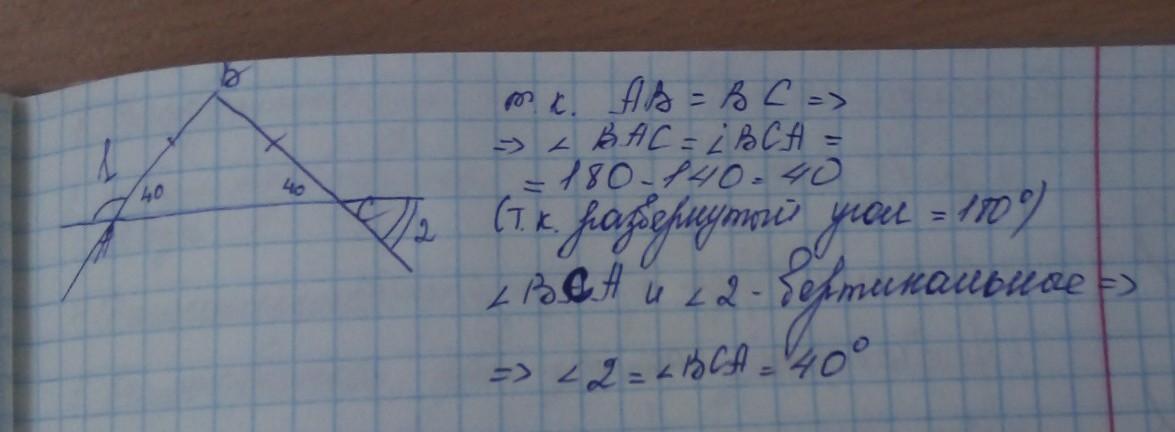 B
1
40
40
A
C
2
т.к. AB = BC =>
=> ∠ BAC = ∠BCA =
= 180 - 140 = 40
(т.к. развернутый угол = 180°)
∠BCA и ∠2 - вертикальные =>
=> ∠2 = ∠BCA = 40°